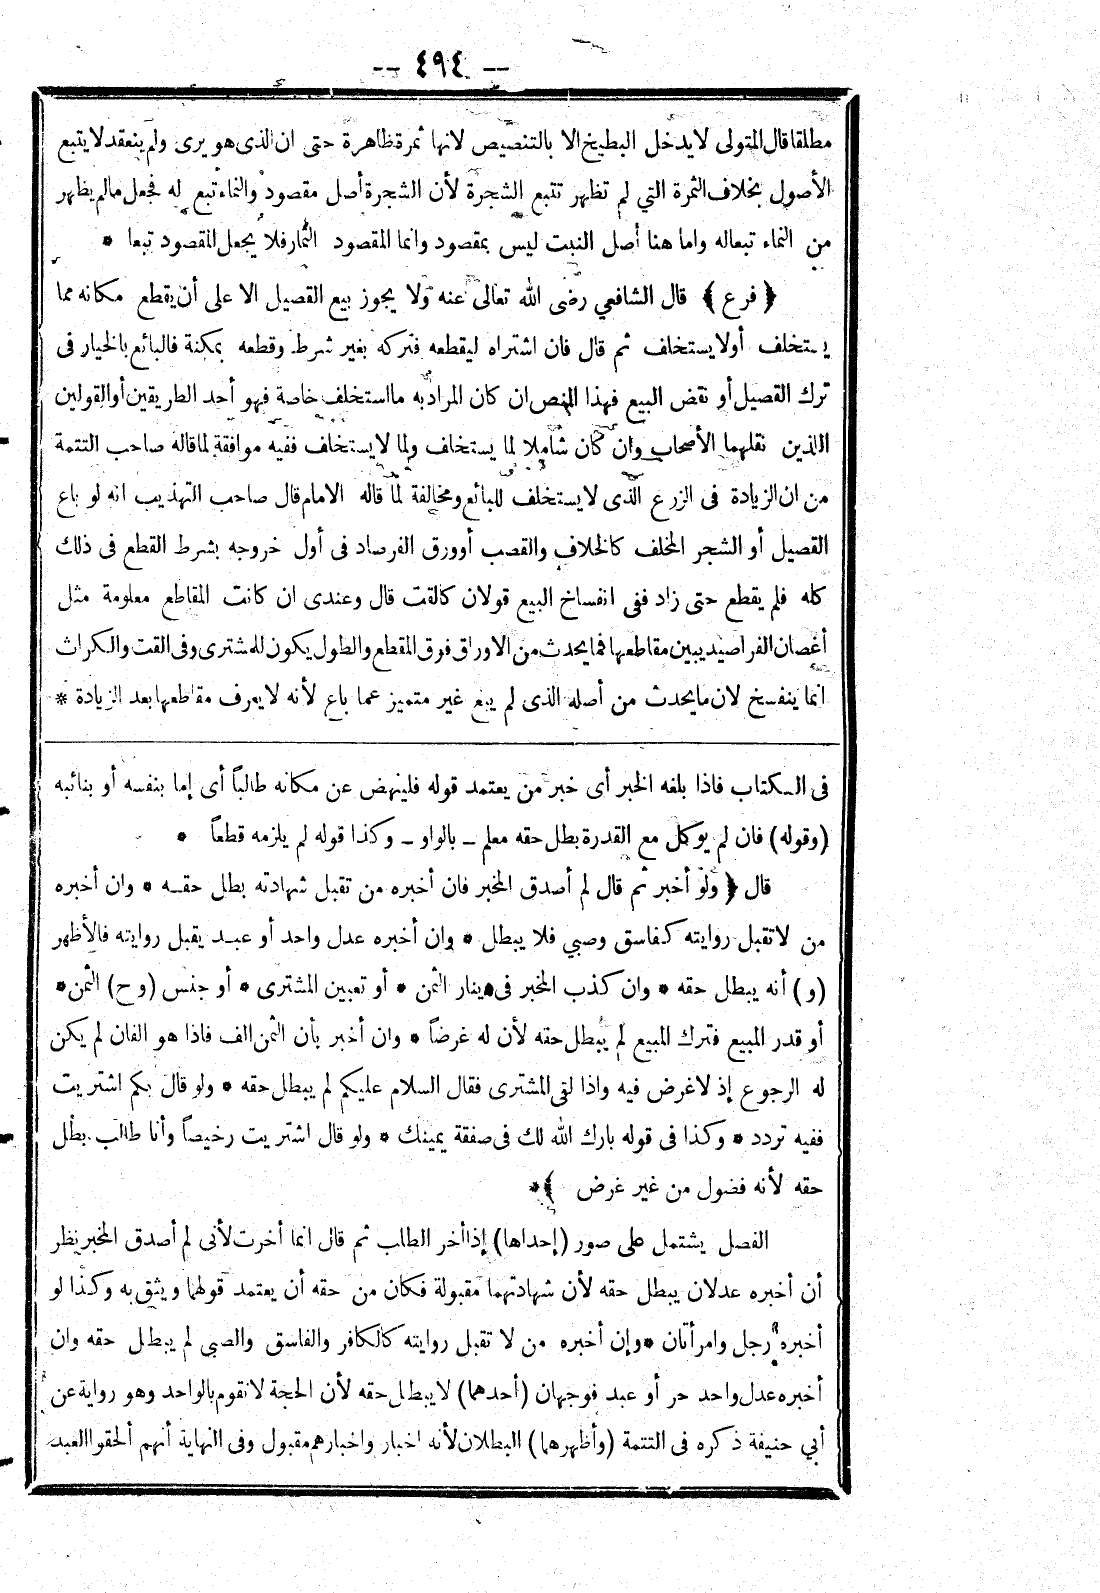 -- ٤٩٤ --
مطلقا قال المتولى لا يدخل البطيخ الا بالتنصيص لانها ثمرة ظاهرة حتى ان الذى هو يرى ولم ينعقد لا يتبع
الأصول بخلاف الثمرة التي لم تظهر تتبع الشجرة لأن الشجرة أصل مقصود والنماء تبع له فجعل مالم يظهر
من النماء تبعاله واما هنا أصل النبت ليس بمقصود وانما المقصود الثمار فلا يجعل المقصود تبعا *
﴿ فرع ﴾ قال الشافعي رضى الله تعالى عنه ولا يجوز بيع القصيل الا على أن يقطع مكانه مما
يستخلف أولا يستخلف ثم قال فان اشتراه ليقطعه فتركه بغير شرط وقطعه بمكنة فالبائع بالخيار فى
ترك القصيل أو نقض البيع فهذا النص ان كان المراد به ما استخلف خاصة فهو أحد الطريقين أو القولين
اللذين نقلهما الأصحاب وان كان شاملا لما يستخلف ولما لا يستخلف ففيه موافقة لما قاله صاحب التتمة
من ان الزيادة فى الزرع الذى لا يستخلف للبائع ومخالفة لما قاله الامام قال صاحب التهذيب انه لو باع
القصيل أو الشجر المخلف كالخلاف والقصب أو ورق الفرصاد فى أول خروجه بشرط القطع فى ذلك
كله فلم يقطع حتى زاد ففى انفساخ البيع قولان كالقت قال وعندى ان كانت المقاطع معلومة مثل
أغصان الفراصيد يبين مقاطعها فما يحدث من الاوراق فوق المقطع والطول يكون للمشترى وفى القت والكراث
انما ينفسخ لان ما يحدث من أصله الذى لم يبع غير متميز عما باع لأنه لا يعرف مقاطعها بعد الزيادة *
فى الكتاب فاذا بلغه الخبر أى خبر من يعتمد قوله فلينهض عن مكانه طالباً أى إما بنفسه أو بنائبه
(وقوله) فان لم يوكل مع القدرة بطل حقه معلم - بالواو - وكذا قوله لم يلزمه قطعاً *
قال ﴿ ولو أخبر ثم قال لم أصدق المخبر فان أخبره من تقبل شهادته بطل حقه * وان أخبره
من لا تقبل روايته كفاسق وصبي فلا يبطل * وان أخبره عدل واحد أو عبد يقبل روايته فالأظهر
(و) أنه يبطل حقه * وان كذب المخبر فى دينار الثمن * أو تعيين المشترى * أو جنس (و ح) الثمن *
أو قدر المبيع فترك المبيع لم يبطل حقه لأن له غرضاً * وان أخبر بأن الثمن الف فاذا هو الفان لم يكن
له الرجوع إذ لا غرض فيه واذا لقى المشترى فقال السلام عليكم لم يبطل حقه * ولو قال بكم اشتريت
ففيه تردد * وكذا فى قوله بارك الله لك فى صفقة يمينك * ولو قال اشتريت رخيصاً وأنا طالب بطل
حقه لأنه فضول من غير غرض ﴾ *
الفصل يشتمل على صور (إحداها) إذا أخر الطلب ثم قال انما أخرت لأنى لم أصدق المخبر نظر
أن أخبره عدلان يبطل حقه لأن شهادتهما مقبولة فكان من حقه أن يعتمد قولهما ويثق به وكذا لو
أخبره رجل وامرأتان * وإن أخبره من لا تقبل روايته كالكافر والفاسق والصبي لم يبطل حقه وان
أخبره عدل واحد حر أو عبد فوجهان (أحدهما) لا يبطل حقه لأن الحجة لا تقوم بالواحد وهو رواية عن
أبي حنيفة ذكره فى التتمة (وأظهرهما) البطلان لأنه اخبار واخبارهم مقبول وفى النهاية أنهم ألحقوا العبد